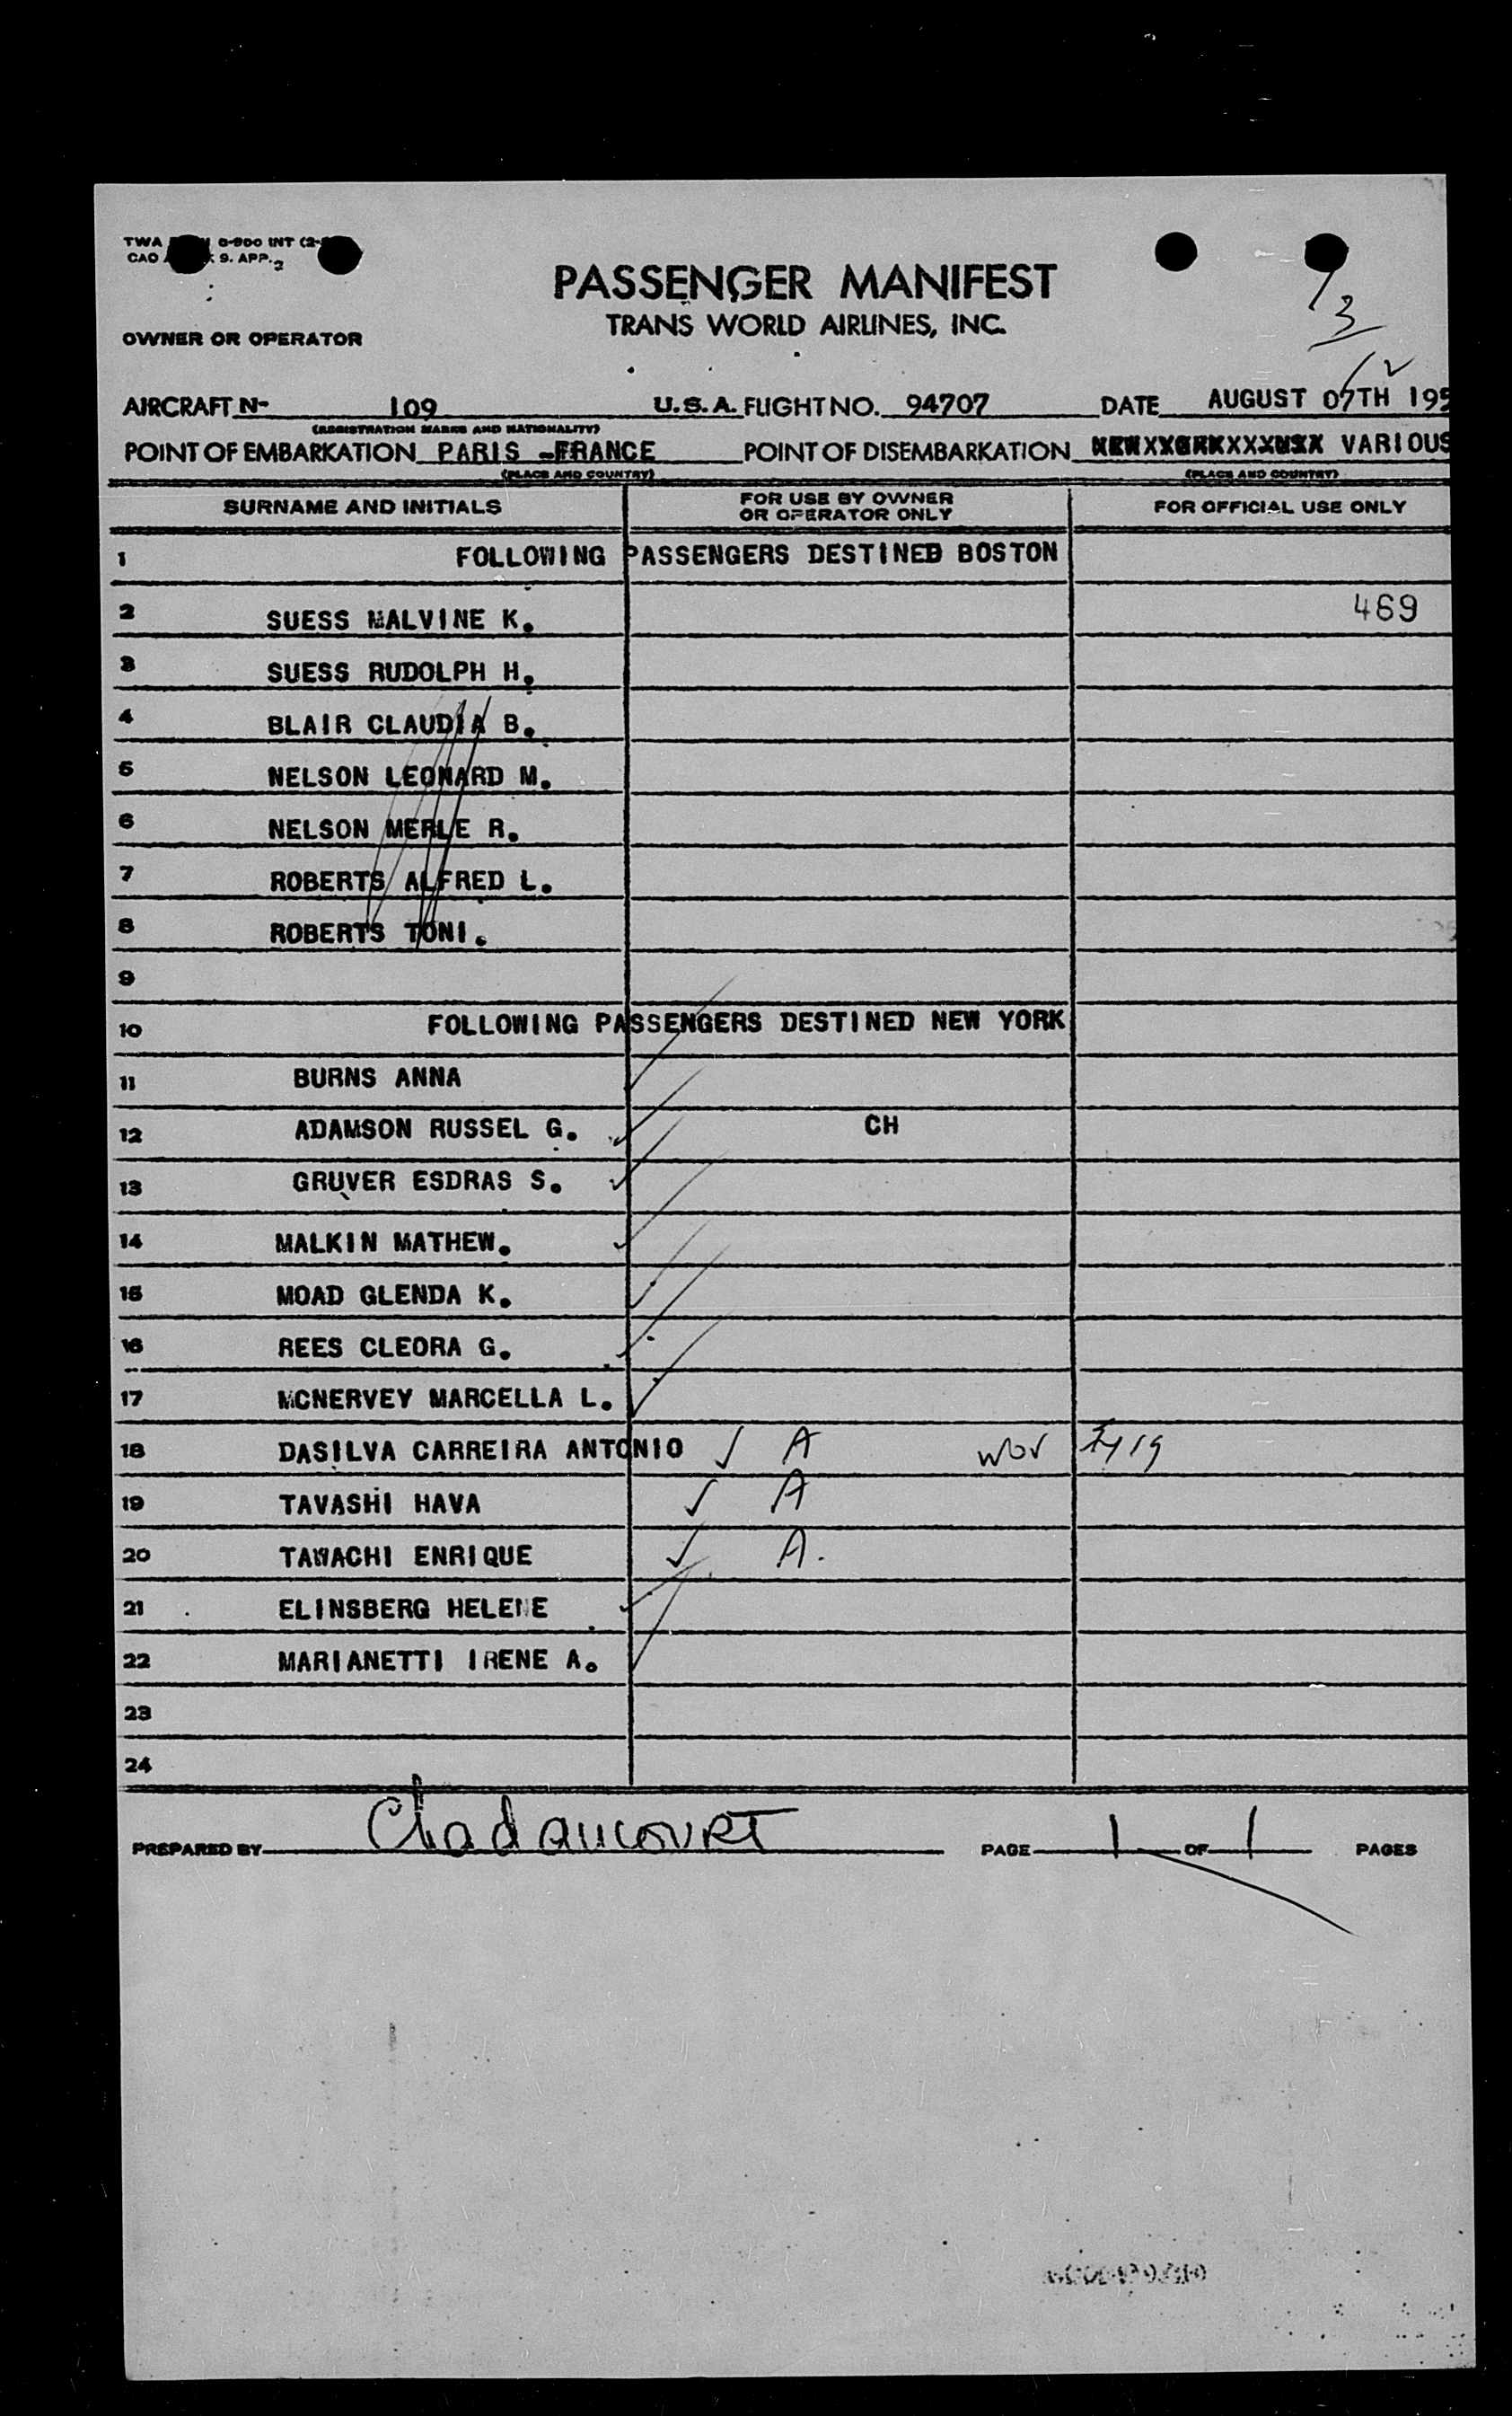 TWA 0-900 INT (2-
CAO 9. APP. 2
PASSENGER MANIFEST
TRANS WORLD AIRLINES, INC.
3
OWNER OR OPERATOR
12
AIRCRAFT N- 109 U.S.A. FLIGHT NO. 94707 DATE AUGUST 07TH 195
(REGISTRATION MARKS AND NATIONALITY)
POINT OF EMBARKATION PARIS -FRANCE POINT OF DISEMBARKATION VARIOUS
(PLACE AND COUNTRY) (PLACE AND COUNTRY)
SURNAME AND INITIALS FOR USE BY OWNER OR OPERATOR ONLY FOR OFFICIAL USE ONLY
1 FOLLOWING PASSENGERS DESTINED BOSTON
2 SUESS MALVINE K. 469
3 SUESS RUDOLPH H.
4 BLAIR CLAUDIA B.
5 NELSON LEONARD M.
6 NELSON MERLE R.
7 ROBERTS ALFRED L.
8 ROBERTS TONI.
9
10 FOLLOWING PASSENGERS DESTINED NEW YORK
11 BURNS ANNA
12 ADAMSON RUSSEL G. CH
13 GRUVER ESDRAS S.
14 MALKIN MATHEW.
15 MOAD GLENDA K.
16 REES CLEORA G.
17 MCNERVEY MARCELLA L.
18 DASILVA CARREIRA ANTONIO A
19 TAVASHI HAVA A
20 TAWACHI ENRIQUE A.
21 ELINSBERG HELENE
22 MARIANETTI IRENE A.
23
24
PREPARED BY Chadaucourt PAGE 1 OF 1 PAGES